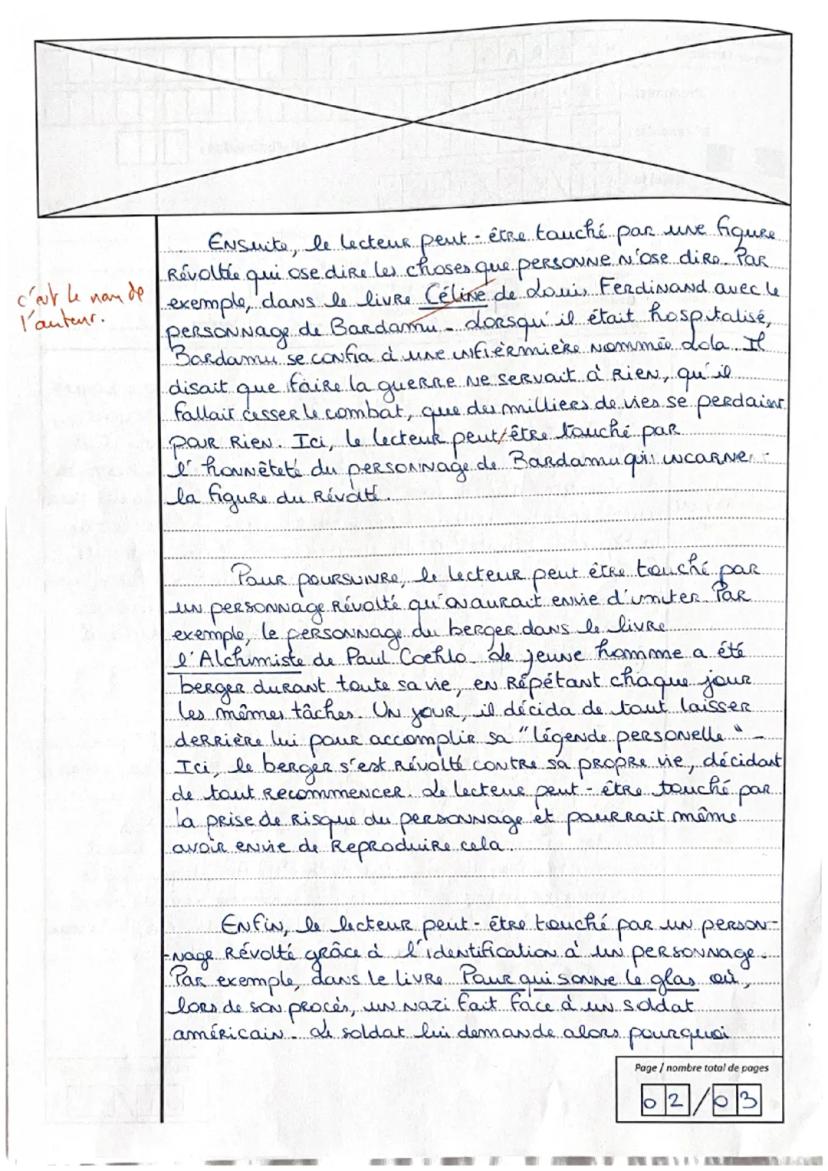 Ensuite, le lecteur peut-être touché par une figure
Révoltée qui ose dire les choses que personne n'ose dire. Par
c'est le nom de
l'auteur.
exemple, dans le livre Céline de Louis Ferdinand avec le
personnage de Bardamu. Lorsqu'il était hospitalisé,
Bardamu se confia à une infiermière nommée Lola. Il
disait que faire la guerre ne servait à Rien, qu'il
fallait cesser le combat, que des milliers de vies se perdaient
pour Rien. Ici, le lecteur peut/être touché par
l'honnêteté du personnage de Bardamu qui incarne
la figure du Révolté.
Pour poursuivre, le lecteur peut être touché par
un personnage Révolté qu'on aurait envie d'imiter. Par
exemple, le personnage du berger dans le livre
l'Alchimiste de Paul Coehlo. Le jeune homme a été
berger durant toute sa vie, en Répétant chaque jour
les mêmes tâches. Un jour, il décida de tout laisser
derrière lui pour accomplir sa "légende personelle".
Ici, le berger s'est Révolté contre sa propre vie, décidant
de tout recommencer. Le lecteur peut-être touché par
la prise de Risque du personnage et pourrait même
avoir envie de Reproduire cela.
Enfin, le lecteur peut-être touché par un person-
-nage Révolté grâce à l'identification à un personnage.
Par exemple, dans le livre Pour qui sonne le glas où,
lors de son procès, un nazi fait face à un soldat
américain. Le soldat lui demande alors pourquoi
Page / nombre total de pages
02/03